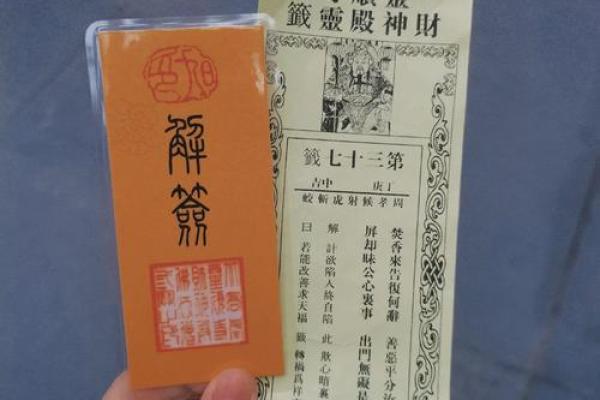 解簽
財神殿靈籤
第三十七籤
丁庚 中吉
周孝候射虎斬蛟
焚香來告復何辭 善惡平分汝
屏却昧公心裏事 出門無礙是
解 計欲陷人終自陷 此 欺心暗裏
曰 若能改善求天福 籤 轉禍爲祥